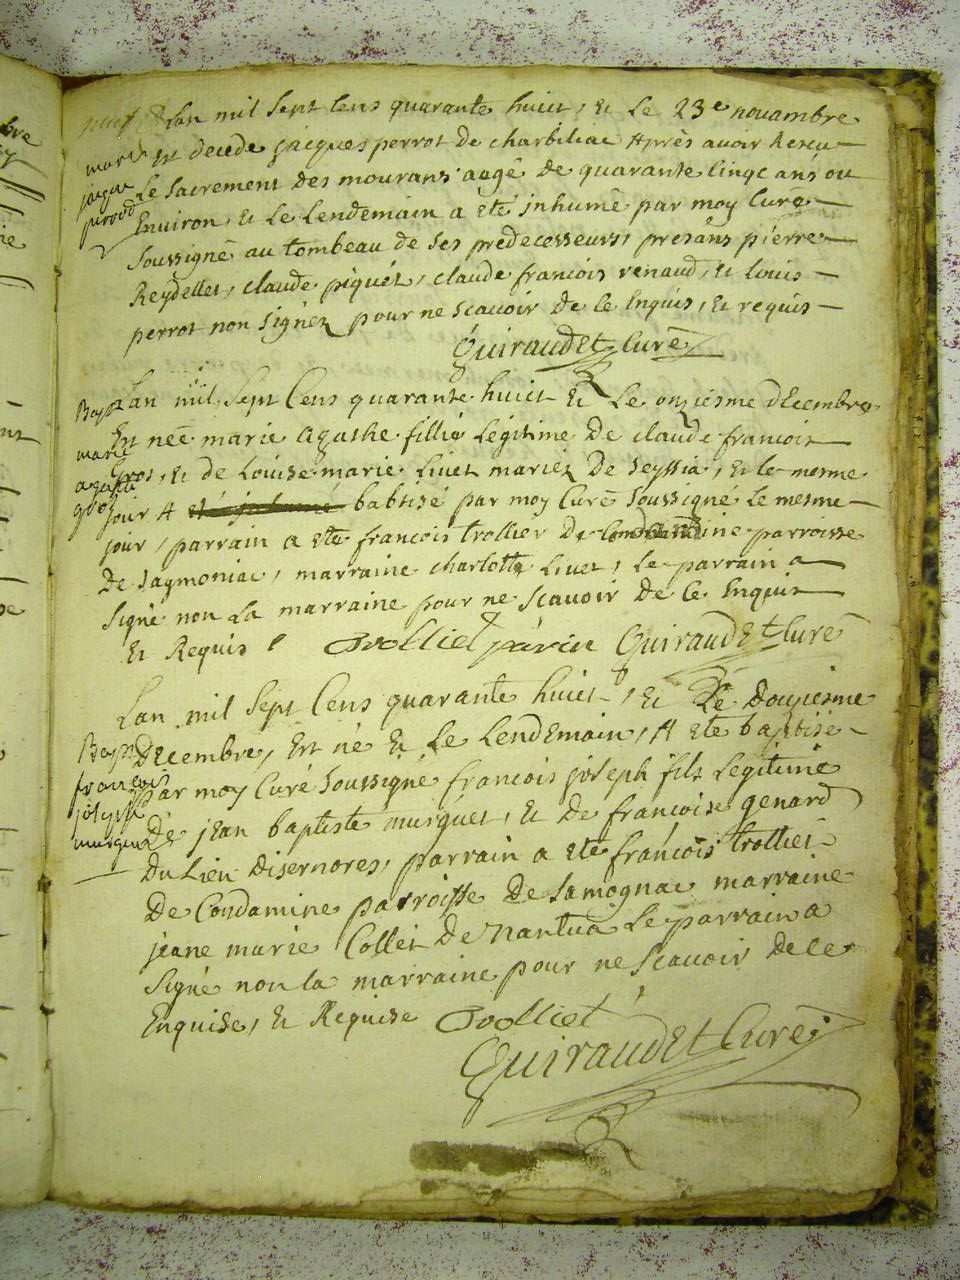 Lan mil Sept Cens quarante huict, et Le 23e novambre
mort
Est decede jacques perrot de charbiliac Après avoir Receu
jaque
Le Sacrement des mourans aagé de quarante Cinqc ans ou
perod
Environ, et Le Lendemain a eté jnhumé par moy Curé
Soussigné au tombeau de Ses predecesseurs, presans pierre
Reydellet, claude piquet, claude francois renaud, et Louis
perrot non Signéz pour ne Scavoir de Ce Enquis, et requis
Guiraudet Curé
Lan mil Sept Cens quarante huict et Le onziesme dEcembre
Bapt
Est neé marie agathe fillie Legitime de claude francois
marie
Gros, et de Louise marie Livet mariéz De Seyssia, et le mesme
agathe
gros
jour A baptisé par moy Curé Soussigné Le mesme
jour, parrain a eté francois trollier De Condamine parroisse
De Sagmoniac, marraine charlotte Livet, Le parrain a
Signé non La marraine pour ne Scavoir de Ce Enquis
Et Requis Trolliet parrin Guiraudet Curé
Lan mil Sept Cens quarante huict, et Le Douziesme
Bapt
DEcembre, Est né et Le Lendemain, A eté baptisé
francois
par moy Curé Soussigné francois joseph fils Legitime
joseph
De jean baptiste murquet, et de francoise genard
Du Lieu Disernores, parrain a eté francois trolliet
De Condamine parroisse De Samognac marraine
jeane marie Collet De Nantua Le parrain a
Signé non la marraine pour ne Scavoir de ce
Enquise, et Requise Trolliet
Guiraudet Curé